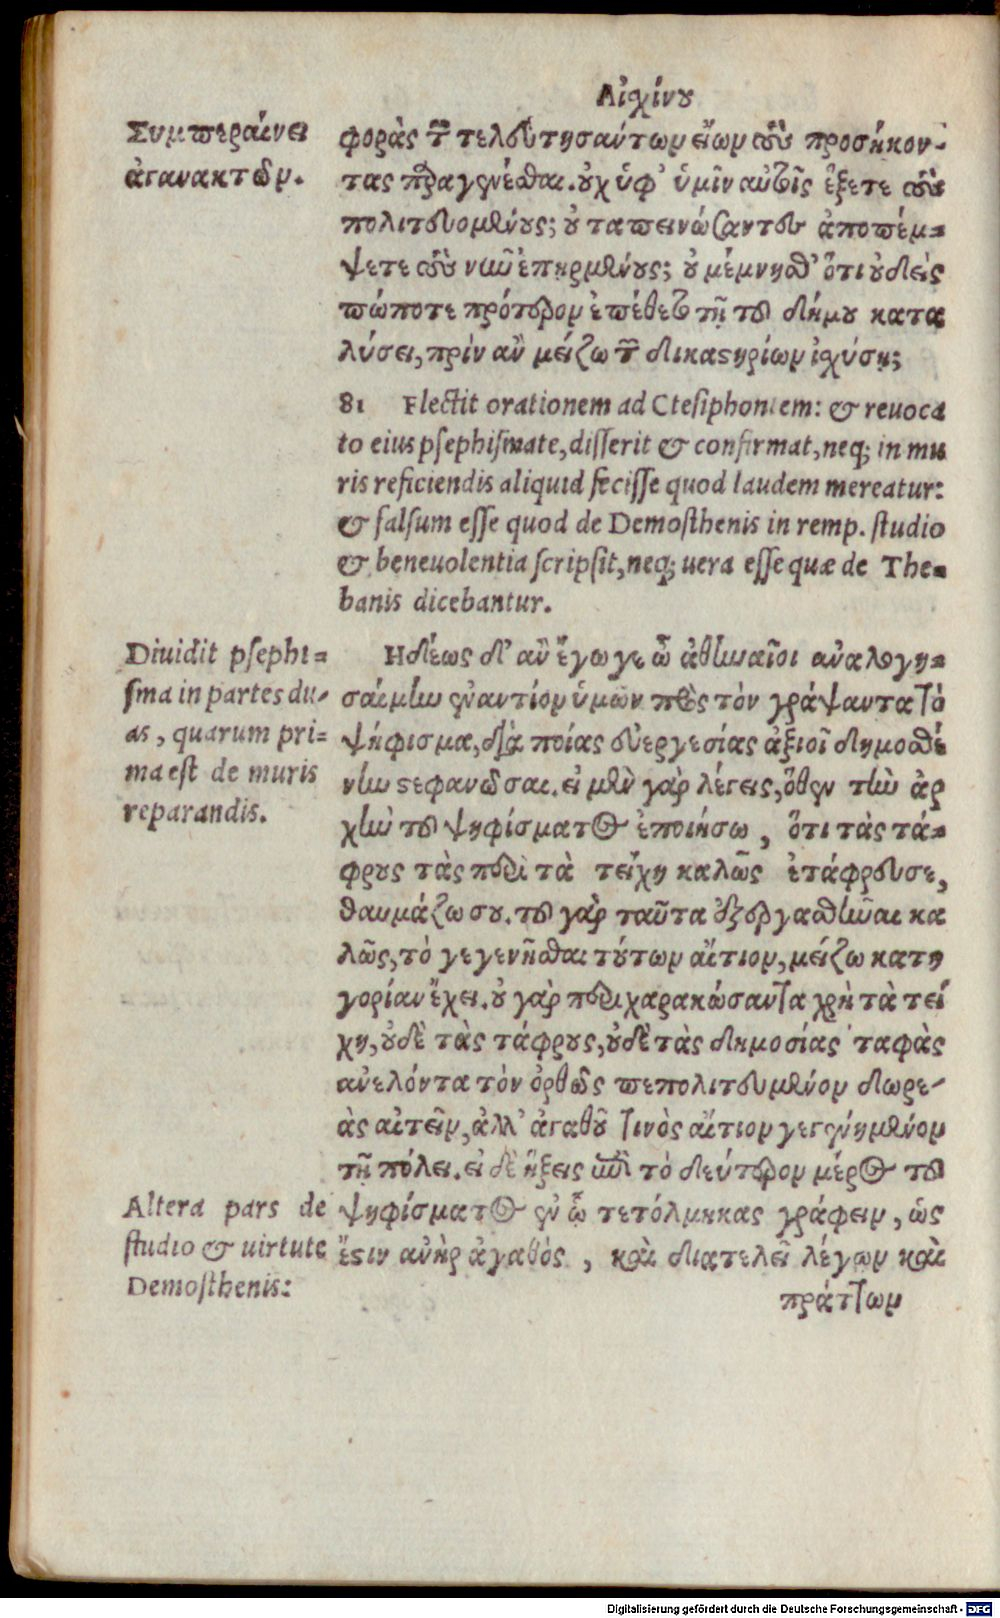 Αἰχίνου
Συμπεραίνει
ἀγανακτῶν.
φορὰς τῶν τελευτησάντων εἴων τοὺς προσήκον-
τας παραγενέσθαι. οὐχ ὑφ' ὑμῖν αὐτοῖς ἕξετε τοὺς
πολιτευομένους; οὐ ταπεινώσαντες ἀποπέμ-
ψετε τοὺς νῦν ἐπηρμένους; οὐ μέμνησθ' ὅτι οὐδεὶς
πώποτε πρότερον ἐπέθετο τῇ τοῦ δήμου κατα
λύσει, πρὶν ἂν μείζω τῶν δικαστηρίων ἰχύσῃ;
81 Flectit orationem ad Ctesiphontem: & reuoca
to eius psephismate, disserit & confirmat, neq; in mu
ris reficiendis aliquid fecisse quod laudem mereatur:
& falsum esse quod de Demosthenis in remp. studio
& beneuolentia scripsit, neq; uera esse quæ de The-
banis dicebantur.
Diuidit psephi-
sma in partes du-
as, quarum pri-
ma est de muris
reparandis.
Ηδέως δ' ἂν ἔγωγε ὦ ἀθηναῖοι ἀναλογη-
σαίμην ἐναντίον ὑμῶν πρὸς τὸν γράψαντα τὸ
ψήφισμα, διὰ ποίας εὐεργεσίας ἀξιοῖ δημοσθέ
νην στεφανῶσαι. εἰ μὲν γὰρ λέγεις, ὅθεν τὴν ἀρ
χὴν τοῦ ψηφίσματος ἐποιήσω, ὅτι τὰς τά-
φρους τὰς περὶ τὰ τείχη καλῶς ἐτάφρευσε,
θαυμάζω σου. τοῦ γὰρ ταῦτα ἐξεργασθῆναι κα
λῶς, τὸ γεγενῆσθαι τούτων αἴτιον, μείζω κατη
γορίαν ἔχει. οὐ γὰρ περιχαρακώσαντα χρὴ τὰ τεί
χη, οὐδὲ τὰς τάφρους, οὐδὲ τὰς δημοσίας ταφὰς
ἀνελόντα τὸν ὀρθῶς πεπολιτευμένον δωρε-
ὰς αἰτεῖν, ἀλλ' ἀγαθοῦ τινὸς αἴτιον γεγενημένον
τῇ πόλει. εἰ δὲ ἥξεις ἐπὶ τὸ δεύτερον μέρος τοῦ
Altera pars de
studio & uirtute
Demosthenis:
ψηφίσματος ἐν ᾧ τετόλμηκας γράφειν, ὡς
ἔστιν ἀνὴρ ἀγαθὸς, καὶ διατελεῖ λέγων καὶ
πράττων
Digitalisierung gefördert durch die Deutsche Forschungsgemeinschaft - DFG